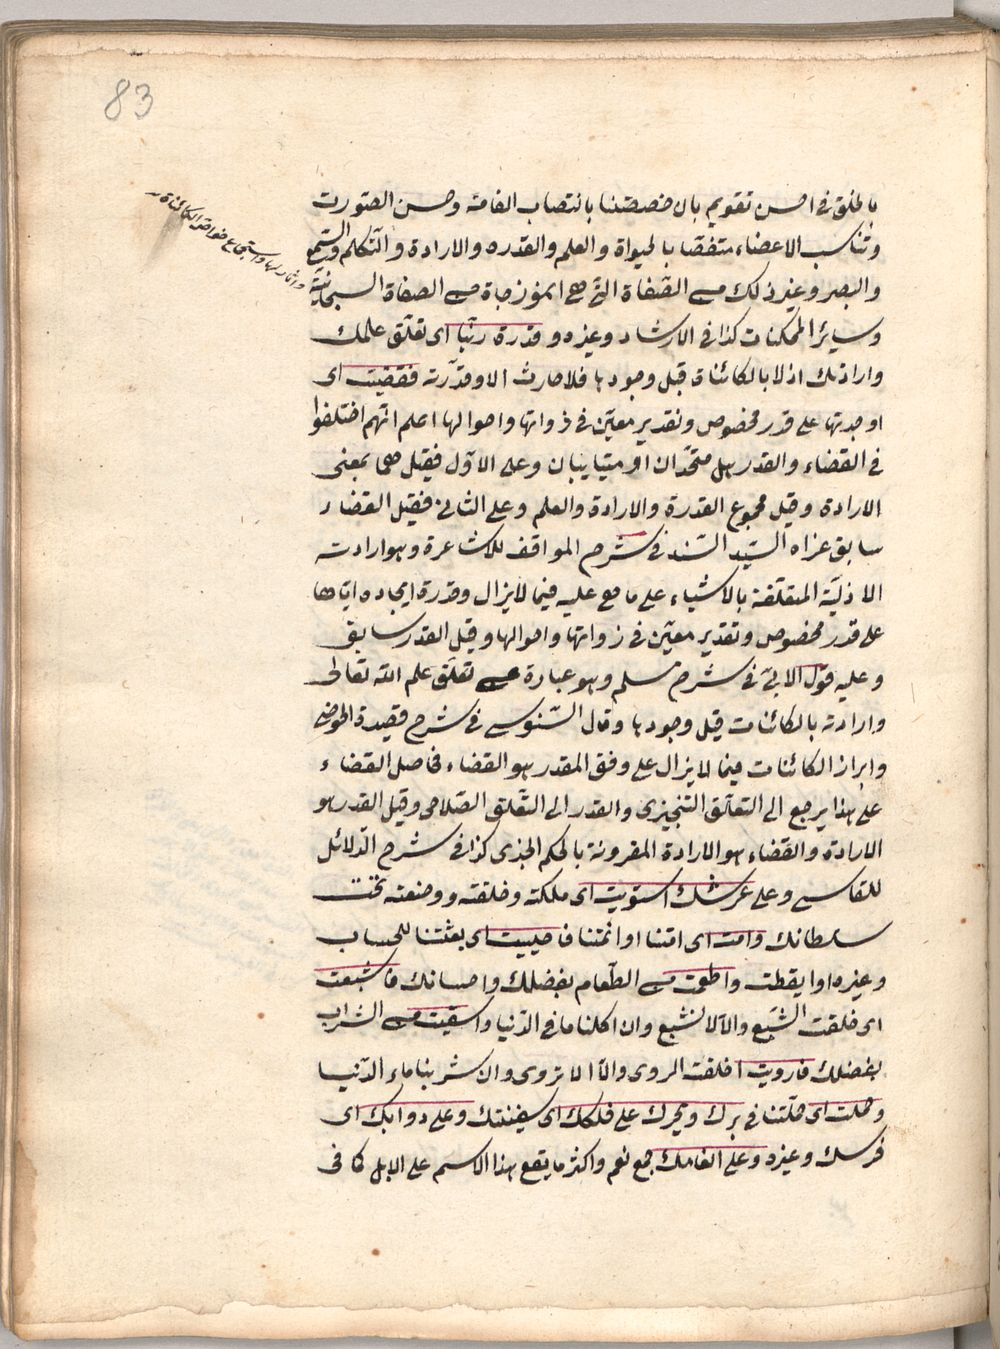 83
بالخلق فى احسن تقويم بان خصصتنا بانتصاب القامة وحسن الصورت
وتناسب الاعضاء متفضا بالحيواة والعلم والقدره والارادة والتكلم والسمع
والبصر وغير ذلك من الصفاة التى هى انموزجاة من الصفاة السبحانية
واثارها واستجماع خواص الكائناة
وسائر الممكنات كذا فى الارشاد وغيره وقدرة ربنا اى تعلق علمك
وارادتك ازلا بالكائنات قبل وجودها فلا حادث الا وقدرته فقضيت اى
اوجدتها على قدر مخصوص وتقدير معين فى ذواتها واحوالها اعلم انهم اختلفوا
فى القضاء والقدر هل متحدان او متباينان وعلى الاول فقيل هما بمعنى
الارادة وقيل مجموع القدرة والارادة والعلم وعلى الثانى فقيل القضاء
سابق عزاه السيد السند فى شرح المواقف للاشاعرة وهو ارادته
الازلية المتعلقة بالاشياء على ما هى عليه فيما لا يزال وقدره ايجاده اياها
على قدر مخصوص وتقدير معين فى ذواتها واحوالها وقيل القدر سابق
وعليه قول الابى فى شرح مسلم وهو عبارة عن تعلق علم الله تعالى
وارادته بالكائنات قبل وجودها وقال السنوسى فى شرح قصيدة الحوضى
وابراز الكائنات فيما لا يزال على وفق المقدر هو القضاء فحاصل القضاء
على هذا يرجع الى التعلق التنجيزى والقدر الى التعلق الصلاحى وقيل القدر هو
الارادة والقضاء هو الارادة المقرونة بالحكم الجزى كذا فى شرح الدلائل
للفاسى وعلى عرشك استويت اى ملكته وخلقته ووضعته تحت
سلطانك وامت اى امتنا او انمتنا فاحييت اى بعثتنا للحساب
وغيره او ايقظت واطعمت من الطعام بفضلك واحسانك فاشبعت
اى خلقت الشبع والا لا نشبع وان اكلنا ما فى الدنيا واسقيت من الشراب
بفضلك فارويت اخلقت الروى والا لا تروى وان شربنا ماء الدنيا
وحملت اى حملتنا فى برك وبحرك على فلكك اى سفينتك وعلى دوابك اى
فرسك وغيره وعلى انعامك جمع نعم واكثر ما يقع هذا الاسم على الابل كا فى